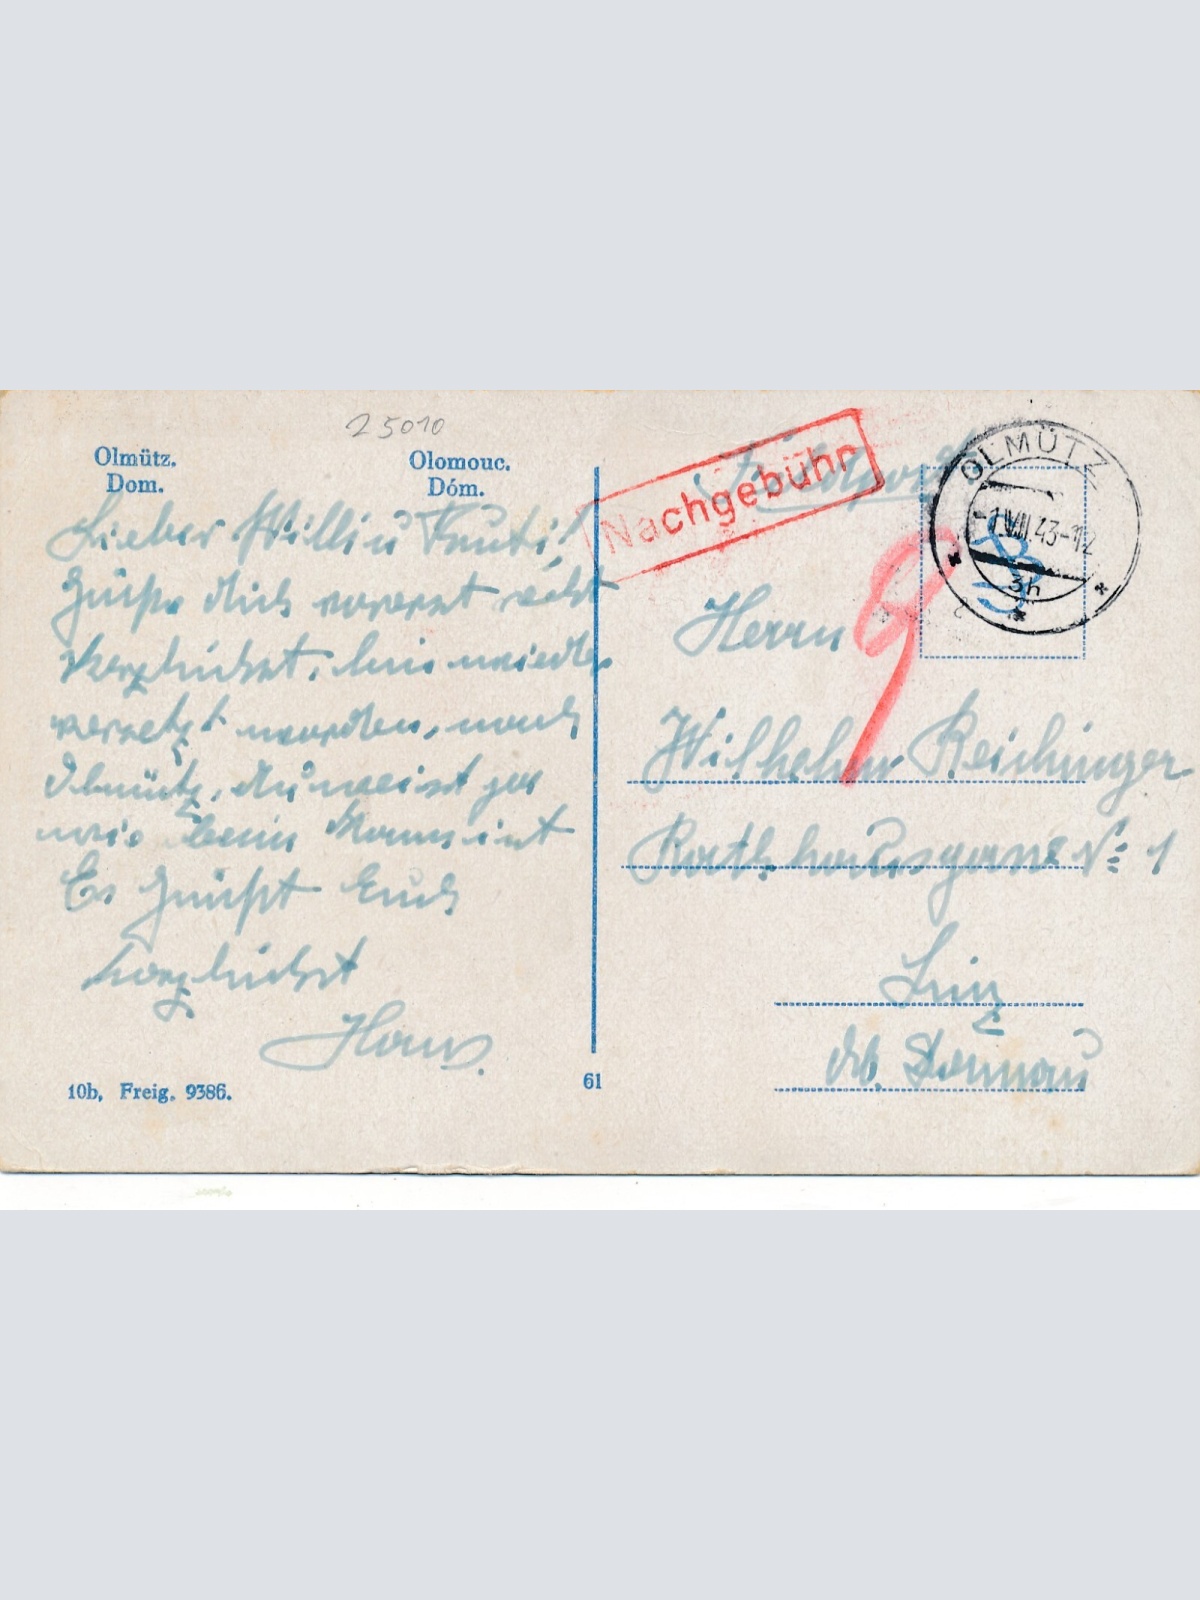 25010
Olmütz.
Dom.
Olomouc.
Dóm.
Lieber Willi u
Grüße Dich vorerst recht
herzlichst, bin wieder
versetzt worden, nach
Olmütz, Du weist ja
wie beim Komm ist
Es Grüßt Euch
herzlichst
Hans
10b, Freig. 9386.
61
Nachgebühr
Feldpost
OLMÜTZ
-1.VIII.43-12
3h
9
Herrn
Wilhelm Reichinger
Rathausgasse № 1
Linz
Db. Donau